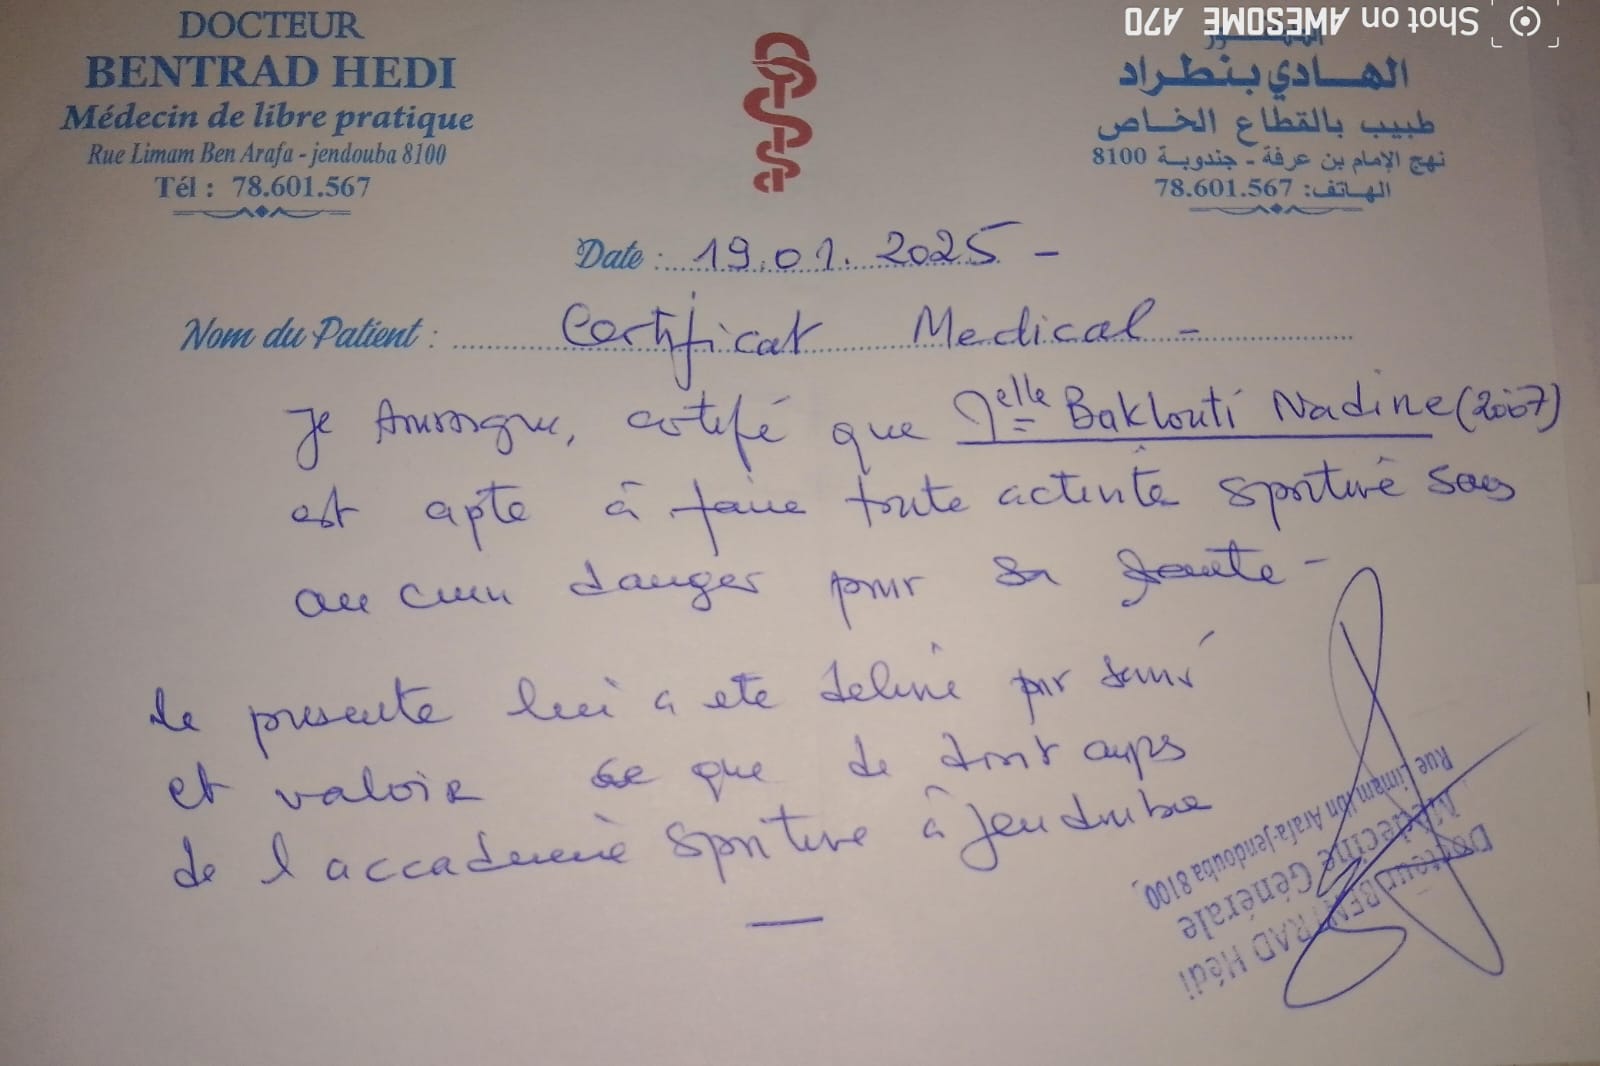 DOCTEUR
BENTRAD HEDI
Médecin de libre pratique
Rue Limam Ben Arafa - jendouba 8100
Tél : 78.601.567
Shot on AWESOME A70
الدكتور
الهادي بنطراد
طبيب بالقطاع الخاص
نهج الإمام بن عرفة - جندوبة 8100
الهاتف: 78.601.567
Date : 19.01.2025 -
Nom du Patient : Certificat Medical -
Je certifé que Baklouti Nadine (2007)
est apte à faire toute activité sportivé sans
aucun danger pour sa santé -
le presente lui a eté delivré pour servir
et valoir ce que de droit
de l'accademié sportive à jendouba
Docteur BENTRAD Hédi
Médecine Générale
Rue Limam Ibn Arafa-jendouba 8100